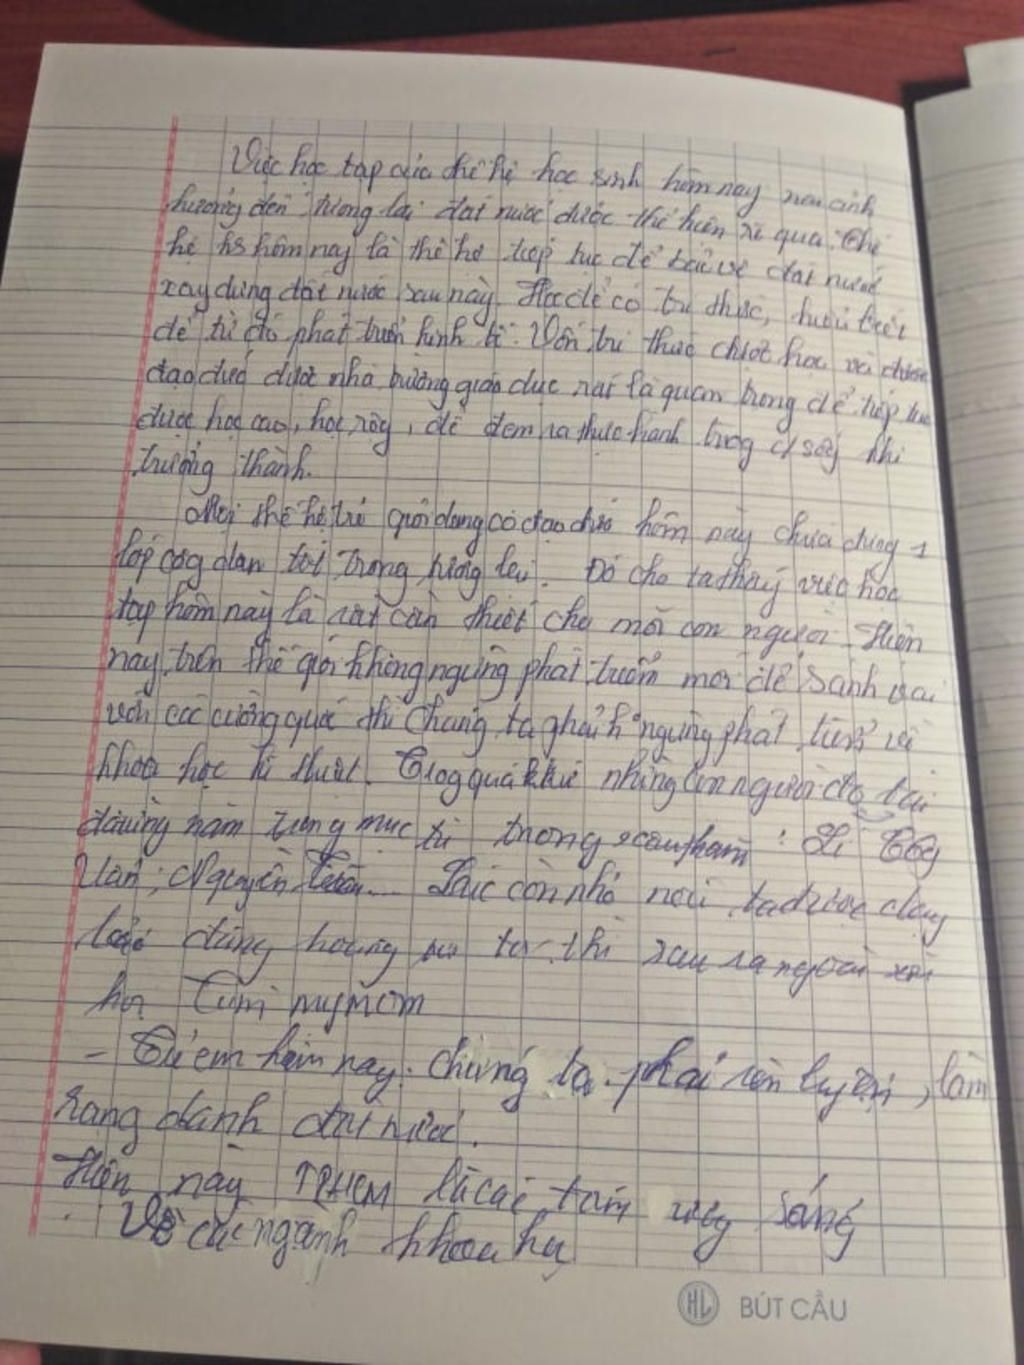 Việc học tập của thế hệ học sinh hôm nay ảnh
hưởng đến tương lai đất nước được thể hiện qua. Thế
hệ hs hôm nay là thế hệ tiếp tục để bảo vệ đất nước
xây dựng đất nước sau này. Học để có tri thức, hiểu biết
để từ đó phát triển kinh tế. Vốn tri thức được học và được
đạo đức được nhà trường giáo dục rất là quan trọng để tiếp tục
được học cao, học rộg, để đem ra thực hành trog c/sốg khi
trưởng thành.
Một thế hệ trẻ giỏi dang có đạo đức hôm nay 1
lớp côg dân tốt trong tương lai. Đó cho ta thấy việc học
tập hôm nay là rất cần thiết cho mỗi con người. Hiện
nay, trên thế giới không ngừng phát triển mới để sánh vai
với các cường quốc thì chúng ta phải k° ngừng phát triển về
khoa học kĩ thuật. Trog quá khứ những con người đó
trong :
Nguyễn còn nhỏ ta được dạy
ta thì sau ra ngoài xã
hội
- Trẻ em hôm nay. Chúng ta phải rèn luyện, làm
rạng danh đất nước.
Hiện nay TPHCM là cái sáng
Về các ngành khoa học
HL BÚT CẦU